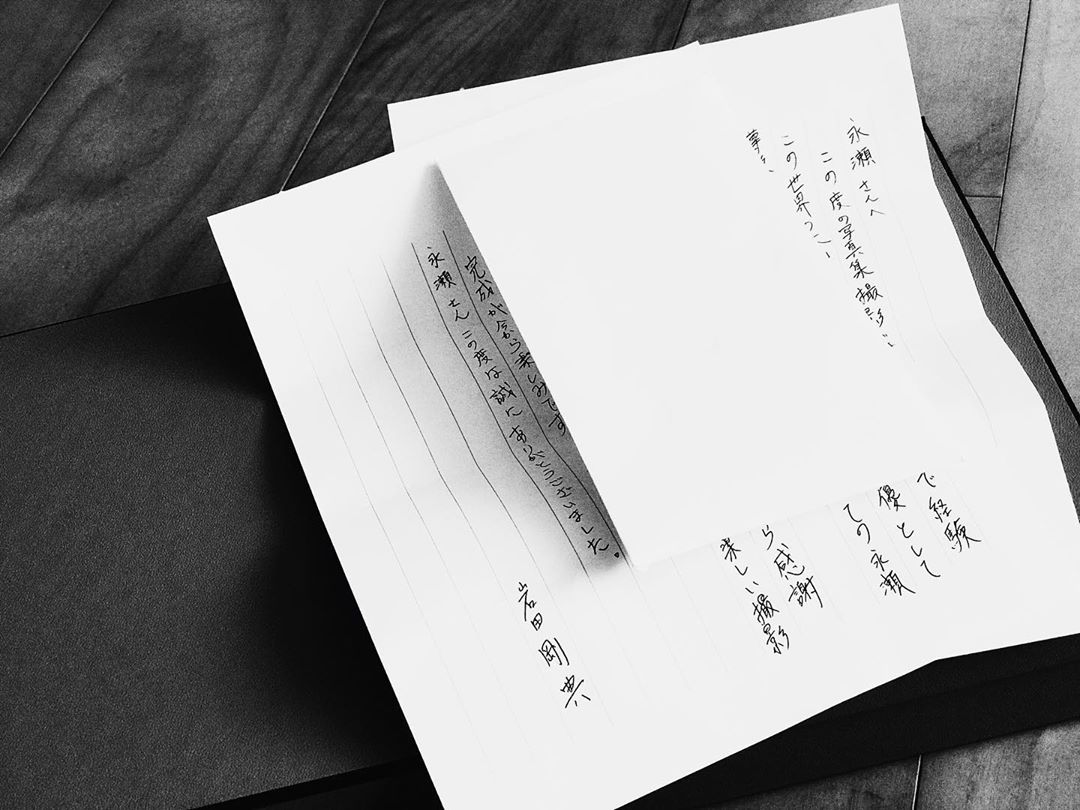 永瀬さんへ
この度の写真集撮影に で経験
この世界 優として
事に、 ての永瀬
ら感謝
楽しい撮影
完成が今から楽しみです
永瀬さんこの度は誠にありがとうございました。
岩田剛典